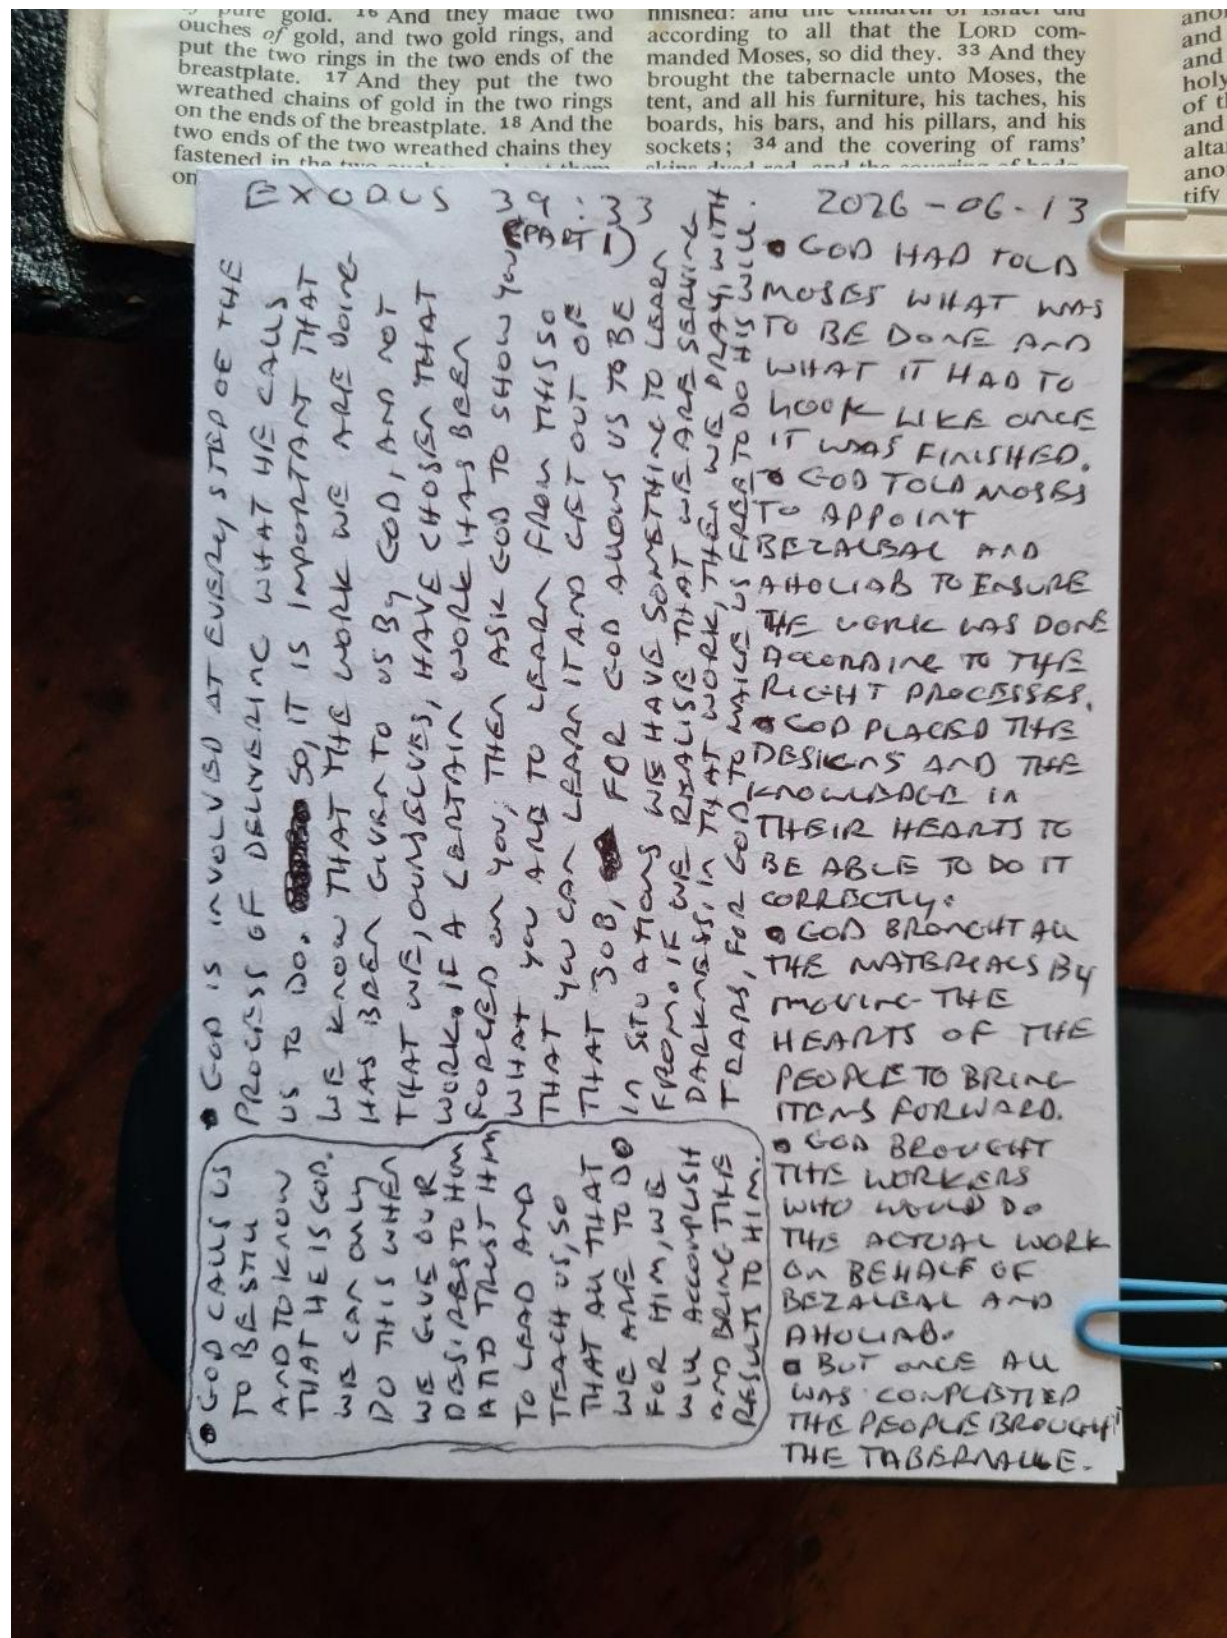 of pure gold. 16 And they made two
ouches of gold, and two gold rings, and
put the two rings in the two ends of the
breastplate. 17 And they put the two
wreathed chains of gold in the two rings
on the ends of the breastplate. 18 And the
two ends of the two wreathed chains they
fastened in the two
on
finished: and the children of Israel did
according to all that the LORD com-
manded Moses, so did they. 33 And they
brought the tabernacle unto Moses, the
tent, and all his furniture, his taches, his
boards, his bars, and his pillars, and his
sockets; 34 and the covering of rams'
skins dyed red, and the covering of
and
and
holy
of
and
alta
ano
tify
EXODUS 39:33
(PART 1)
2026-06-13
• GOD HAD TOLD
MOSES WHAT WAS
TO BE DONE AND
WHAT IT HAD TO
LOOK LIKE ONCE
IT WAS FINISHED.
• GOD TOLD MOSES
TO APPOINT
BEZALEAL AND
AHOLIAB TO ENSURE
THE WORK WAS DONE
ACCORDING TO THE
RIGHT PROCESSES.
• GOD PLACED THE
DESIGNS AND THE
KNOWLEDGE IN
THEIR HEARTS TO
BE ABLE TO DO IT
CORRECTLY.
• GOD BROUGHT ALL
THE MATERIALS BY
MOVING THE
HEARTS OF THE
PEOPLE TO BRING
ITEMS FORWARD.
• GOD BROUGHT
THE WORKERS
WHO WOULD DO
THE ACTUAL WORK
ON BEHALF OF
BEZALEAL AND
AHOLIAB.
• BUT ONCE ALL
WAS COMPLETED
THE PEOPLE BROUGHT
THE TABERNACLE.
• GOD IS INVOLVED AT EVERY STEP OF THE
PROCESS OF DELIVERING WHAT HE CALLS
US TO DO. SO, IT IS IMPORTANT THAT
WE KNOW THAT THE WORK WE ARE DOING
HAS BEEN GIVEN TO US BY GOD, AND NOT
THAT WE, OURSELVES, HAVE CHOSEN THAT
WORK. IF A CERTAIN WORK HAS BEEN
FORCED ON YOU, THEN ASK GOD TO SHOW YOU
WHAT YOU ARE TO LEARN FROM THIS SO
THAT YOU CAN LEARN IT AND GET OUT OF
THAT JOB, FOR GOD ALLOWS US TO BE
IN SITUATIONS WE HAVE SOMETHING TO LEARN
FROM. IF WE REALISE THAT WE ARE SERVING
DARKNESS, IN THAT WORK, THEN WE PRAY, WITH
TEARS, FOR GOD TO MAKE US FREE TO DO HIS WILL.
• GOD CALLS US
TO BE STILL
AND TO KNOW
THAT HE IS GOD.
WE CAN ONLY
DO THIS WHEN
WE GIVE OUR
DESIRES TO HIM
AND TRUST HIM
TO LEAD AND
TEACH US, SO
THAT ALL THAT
WE ARE TO DO
FOR HIM, WE
WILL ACCOMPLISH
AND BRING THE
RESULTS TO HIM.